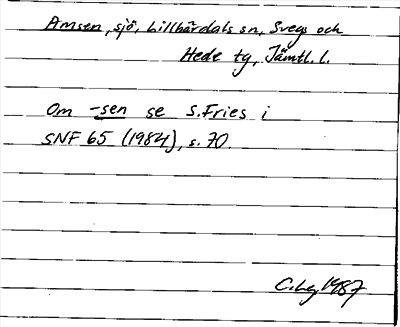 Amsen, sjö, Lillhärdals sn, Svegs och
Hede tg, Jämtl. l.
Om -sen se S. Fries i
SNF 65 (1984), s. 70.
1987